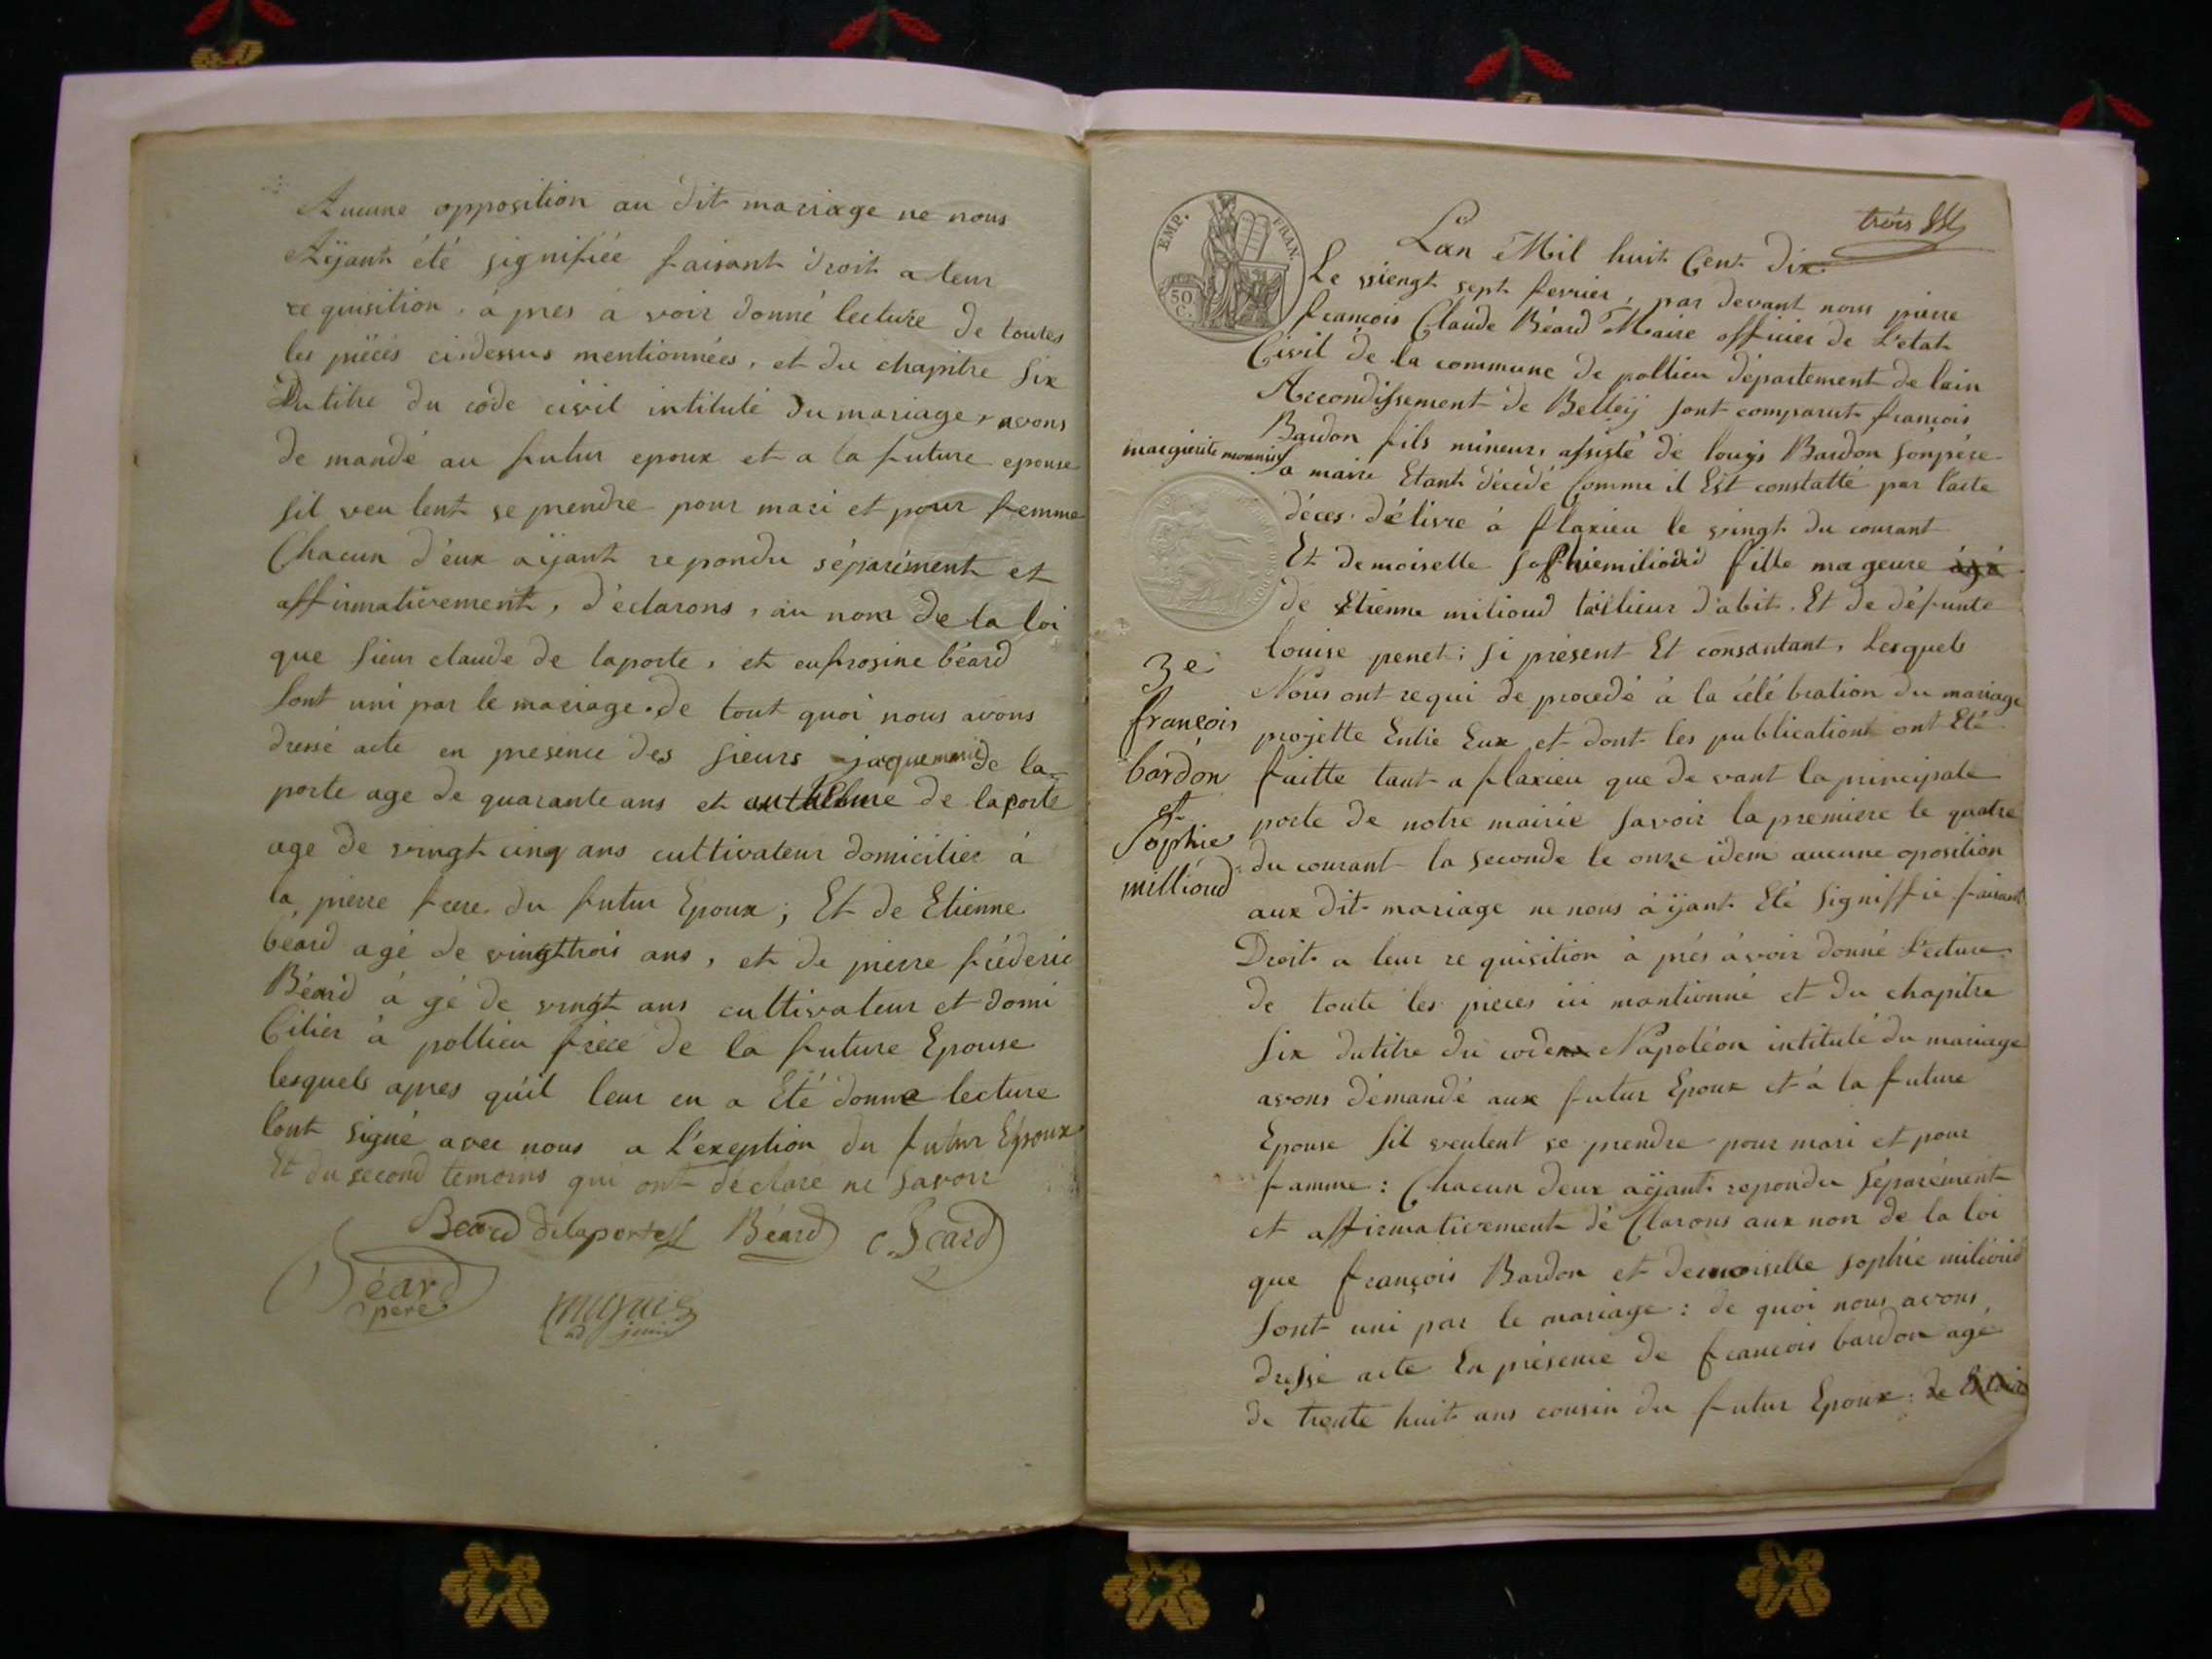 Aucune opposition au dit mariage ne nous
Aÿant été signifiée faisant droit a leur
requisition, a pres a voir donné lecture de toutes
les pièces cidessus mentionnées, et du chapitre Six
Du titre du code civil intitulé du mariage, avons
de mandé au futur epoux et a la future epouse
sil veu lent se prendre pour mari et pour femme
Chacun d'eux aÿant repondu séparément et
affirmativement, d'eclarons, au nom de la loi
que sieur claude de laporte, et eufrosine béard
sont uni par le mariage. de tout quoi nous avons
dressé acte en presence des sieurs jaquemmie de la
porte age de quarante ans et anthelme de laporte
age de vingt cinq ans cultivateur domicilier à
la pierre frere du futur Epoux; Et de Etienne
béard agé de vingttrois ans, et de pierre fréderic
Béard à gé de vingt ans cultivateur et domi
Cilier à pollieu frere de la future Epouse
lesquels apres qu'il leur en a Eté donné lecture
l'ont signé avec nous a L'exeption du futur Epoux
Et du second temoins qui ont declaré ne savoir
Béard delaporte Béard C. Béard
Béard
pere
mugnier
adjoint
EMP. FRAN.
50 C.
trois
Lan Mil huit Cent dix
Le viengt sept fevrier, par devant nous pierre
françois Claude Béard Maire officier de L'etat
Civil de la commune de pollieu département de lain
Arrondissement de Belleÿ sont comparut françois
Bardon fils mineur, assisté de louÿs Bardon son pére
margierite monnier
Sa maire Etant décédé Comme il Est constatté par l'acte
déces délivre à flaxieu le vingt du courant
Et demoiselle Sophie milioud fille mageure agé
de Etienne milioud taillieur d'abit. Et de défunte
louise penet; si présent Et consantant, Lesquels
3e
françois
bardon
et
Sophie
millioud
Nous ont requi de procedé à la célé bration du mariage
projette Entre Eux et dont les publications ont Eté
faitte tant a flaxieu que de vant la principale
porte de notre mairie savoir la premiere le quatre
du courant la seconde le onze idem aucune oposition
aux dit mariage ne nous aÿant Eté signiffié faisant
Droit a leur re quisition à prés avoir donné Lecture
de toute les pieces ici mantionné et du chapitre
Six du titre du code Napoléon intitulé du mariage
avons démandé aux futur Epoux et à la future
Epouse sil veulent se prendre pour mari et pour
famme: Chacun deux aÿant repondu séparément
et affirmativement dé Clarons aux non de la loi
que françois Bardon et demoiselle sophie milioud
Sont uni par le mariage: de quoi nous avons
dressé acte En présence de françois bardon agé
de trente huit ans cousin du futur Epoux: de